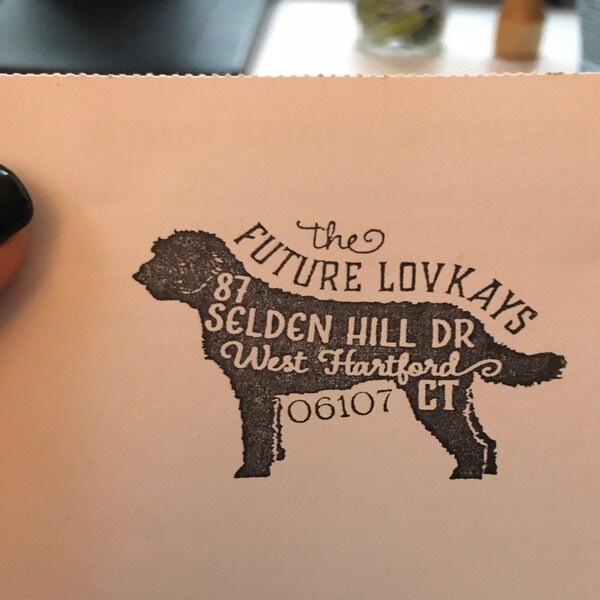 the
FUTURE LOVKAYS
87
SELDEN HILL DR
West Hartford
CT
06107